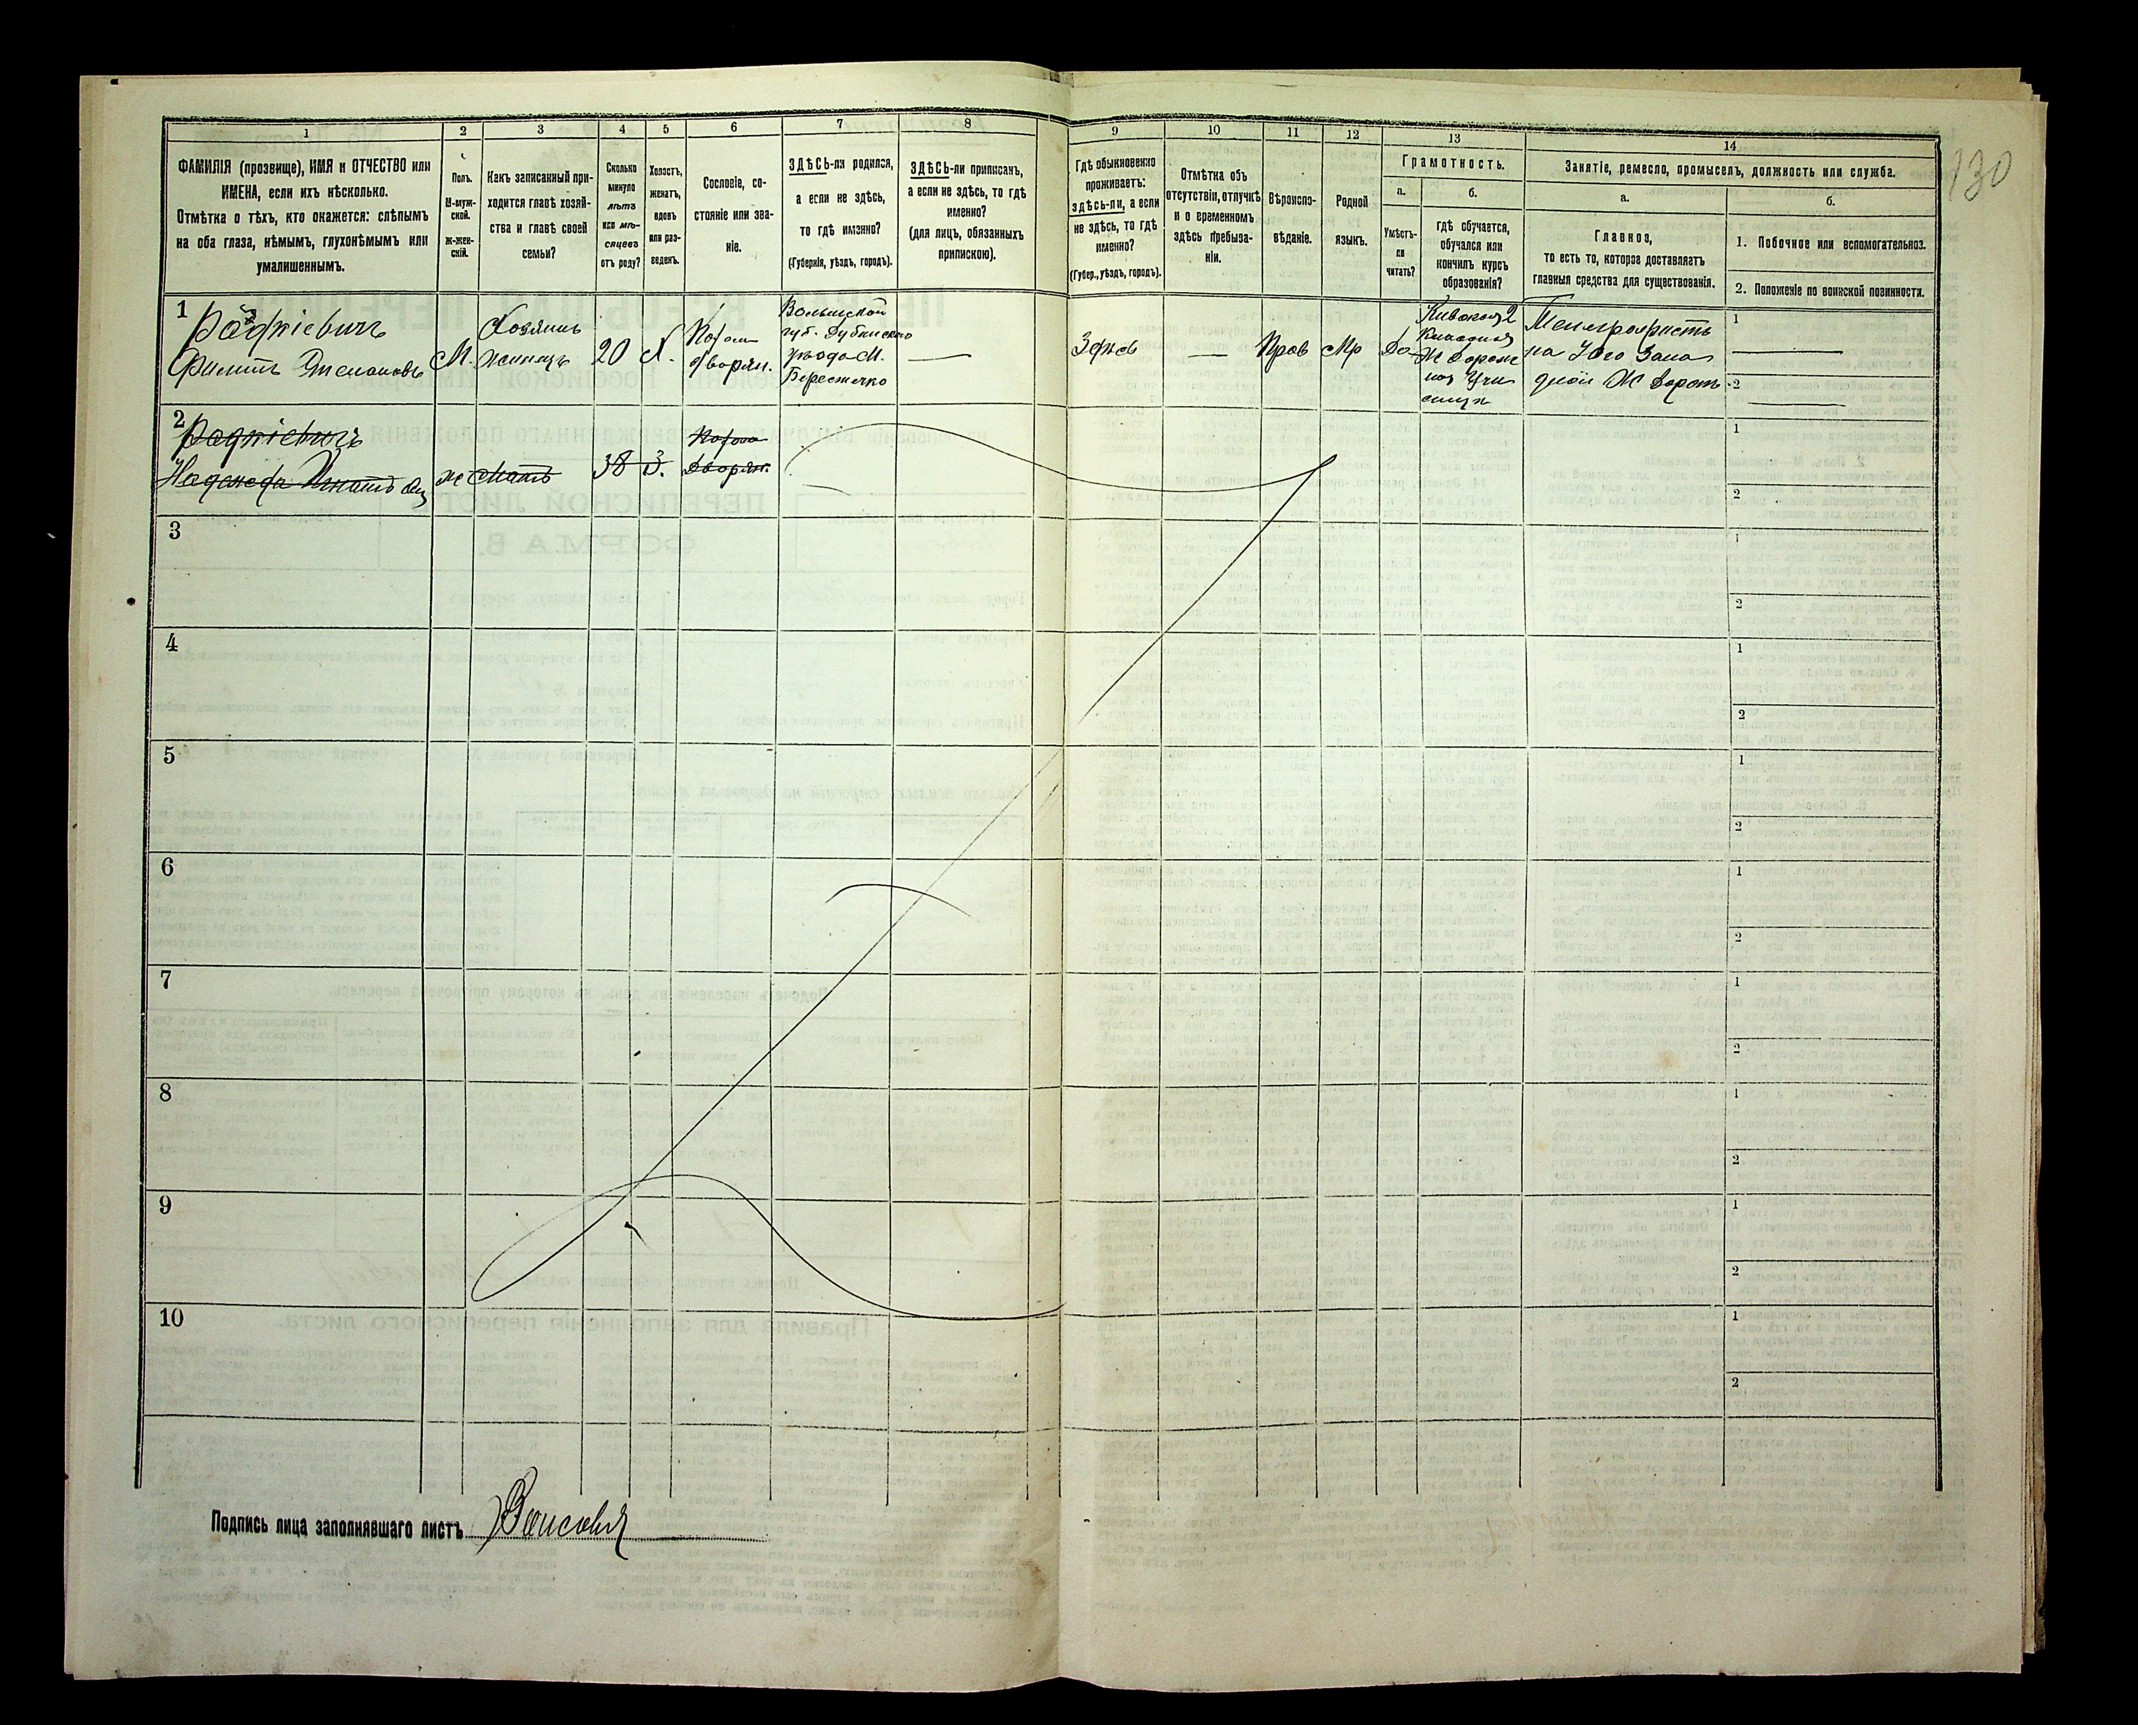 1 2 3 4 5 6 7 8 9 10 11 12 13 14
130
ФАМИЛІЯ (прозвище), ИМЯ и ОТЧЕСТВО или
ИМЕНА, если ихъ нѣсколько.
Отмѣтка о тѣхъ, кто окажется: слѣпымъ
на оба глаза, нѣмымъ, глухонѣмымъ или
умалишеннымъ.
Полъ.
М-муж-
ской.
ж-жен-
скій.
Какъ записанный при-
ходится главѣ хозяй-
ства и главѣ своей
семьи?
Сколько
минуло
лѣтъ
или мѣ-
сяцевъ
отъ роду?
Холостъ,
женатъ,
вдовъ
или раз-
веденъ.
Сословіе, со-
стояніе или зва-
ніе.
ЗДѢСЬ-ли родился,
а если не здѣсь,
то гдѣ именно?
(Губернія, уѣздъ, городъ).
ЗДѢСЬ-ли приписанъ,
а если не здѣсь, то гдѣ
именно?
(для лицъ, обязанныхъ
припискою).
Гдѣ обыкновенно
проживаетъ:
здѣсь-ли, а если
не здѣсь, то гдѣ
именно?
(Губер., уѣздъ, городъ).
Отмѣтка объ
отсутствіи, отлучкѣ
и о временномъ
здѣсь пребыва-
ніи.
Вѣроиспо-
вѣданіе.
Родной
языкъ.
Грамотность.
а.
Умѣетъ-
ли
читать?
б.
гдѣ обучается,
обучался или
кончилъ курсъ
образованія?
Занятіе, ремесло, промыселъ, должность или служба.
а.
Главное,
то есть то, которое доставляетъ
главныя средства для существованія.
б.
1. Побочное или вспомогательное.
2. Положеніе по воинской повинности.
1
Филипп
М.
Хозяинъ
20
Х.
Потом.
дворян.
Волынской
губ. Дубенскаго
уѣзда М.
Берестечко
—
Здѣсь
—
Прав
Мр
Да
2
Классное
Телеграфистъ
на Юго Запа
дной Ж Дорогѣ
1 —
2 —
2
Надежда
ж
Мать
38
З.
Потом
Дворян.
1
2
3
1
2
4
1
2
5
1
2
6
1
2
7
1
2
8
1
2
9
1
2
10
1
2
Подпись лица заполнявшаго листъ